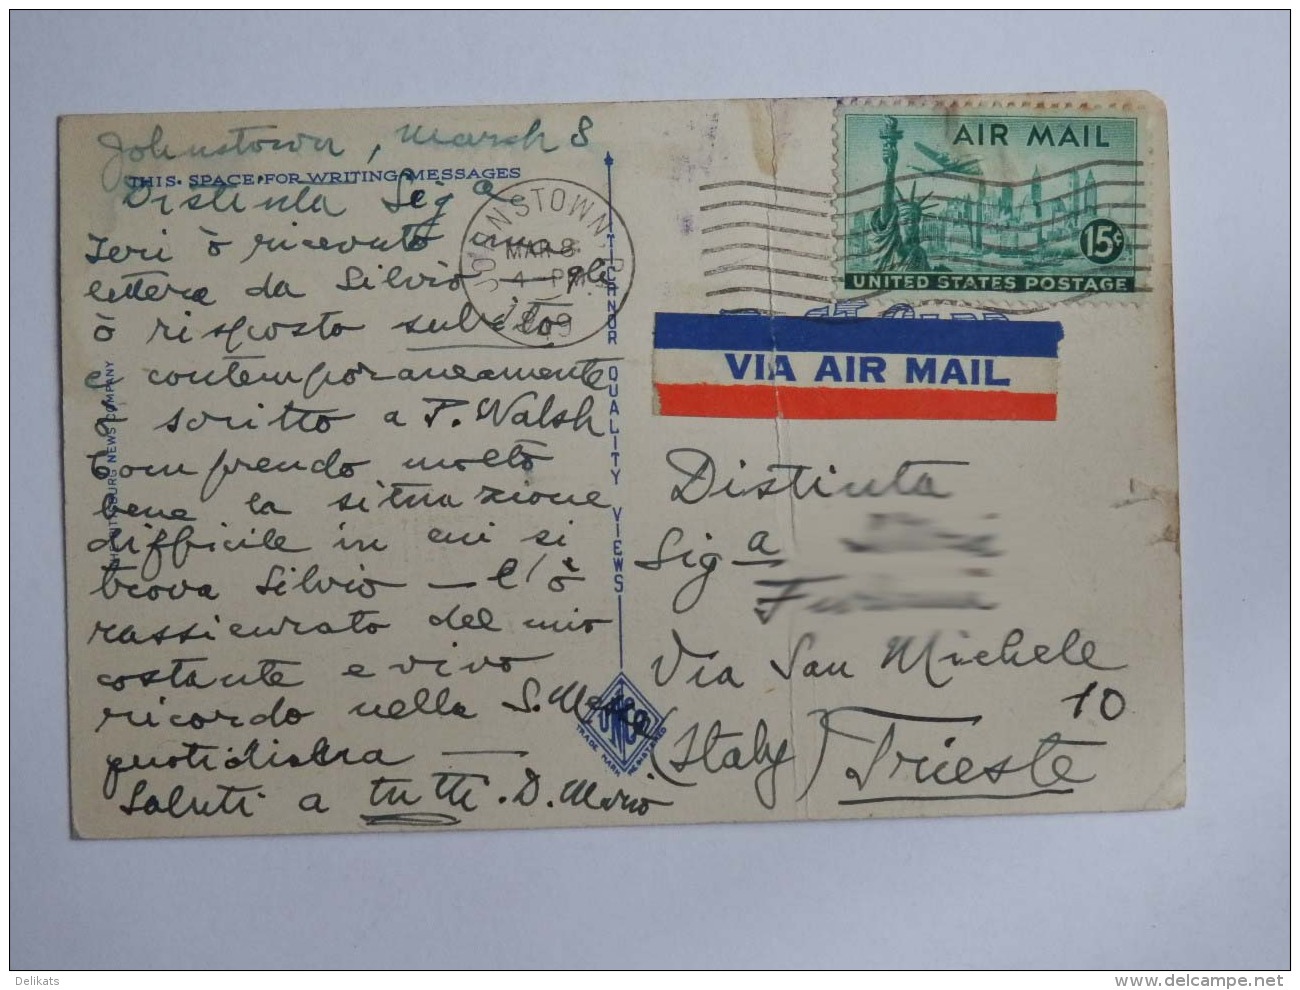 Johnstown, March 8
THIS SPACE FOR WRITING MESSAGES
Distinta Sig a
Ieri ò ricevuto una
lettera da Silvio gli
ò risposto subito
e contemporaneamente
ò scritto a P. Walsh
Comprendo molto
bene la situazione
difficile in cui si
trova Silvio — l'ò
rassicurato del mio
costante e vivo
ricordo nella S. Messa
quotidiana —
Saluti a tutti. D. Mario
THE PITTSBURG NEWS COMPANY
TICHNOR QUALITY VIEWS
TRADE MARK REGISTERED
JOHNSTOWN, PA
MAR 8
4 - PM
1949
AIR MAIL
15¢
UNITED STATES POSTAGE
VIA AIR MAIL
Distinta
Sig a
Via San Michele
10
(Italy) Trieste
Delikats
www.delcampe.net